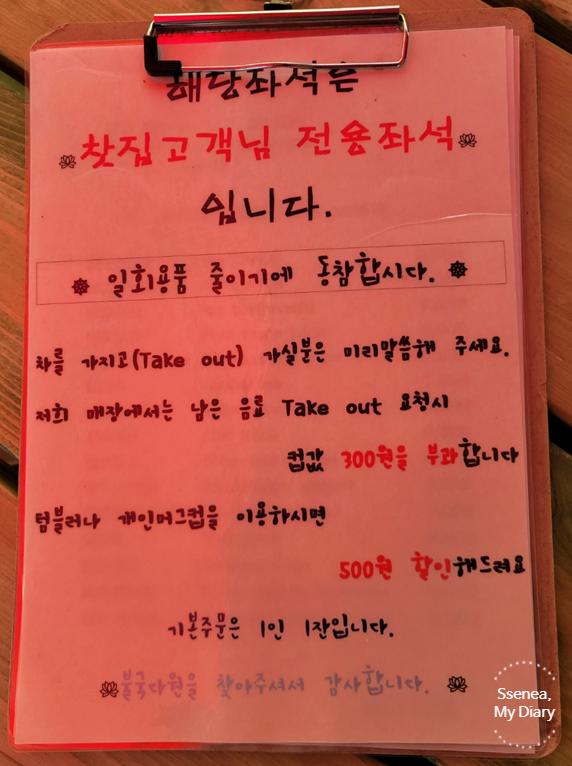 해당좌석은
찻집고객님 전용좌석
입니다.
일회용품 줄이기에 동참합시다.
차를 가지고(Take out) 가실분은 미리말씀해 주세요.
저희 매장에서는 남은 음료 Take out 요청시
컵값 300원을 부과합니다
텀블러나 개인머그컵을 이용하시면
500원 할인해드려요
기본주문은 1인 1잔입니다.
불국다원을 찾아주셔서 감사합니다.
Ssenea,
My Diary